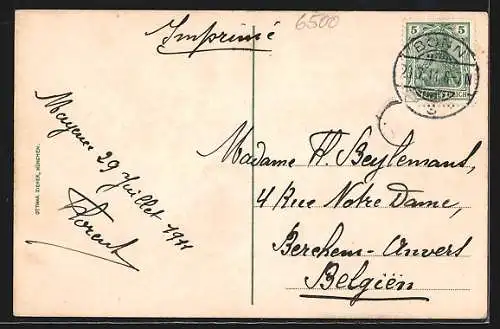 6500
Imprimé
5 5
BONN
REICH
Mayence 29 Juillet 1911
Florent
OTTMAR ZIEHER, MÜNCHEN.
Madame H. Beylemans,
4 Rue Notre Dame,
Berchem-Anvers
Belgiën